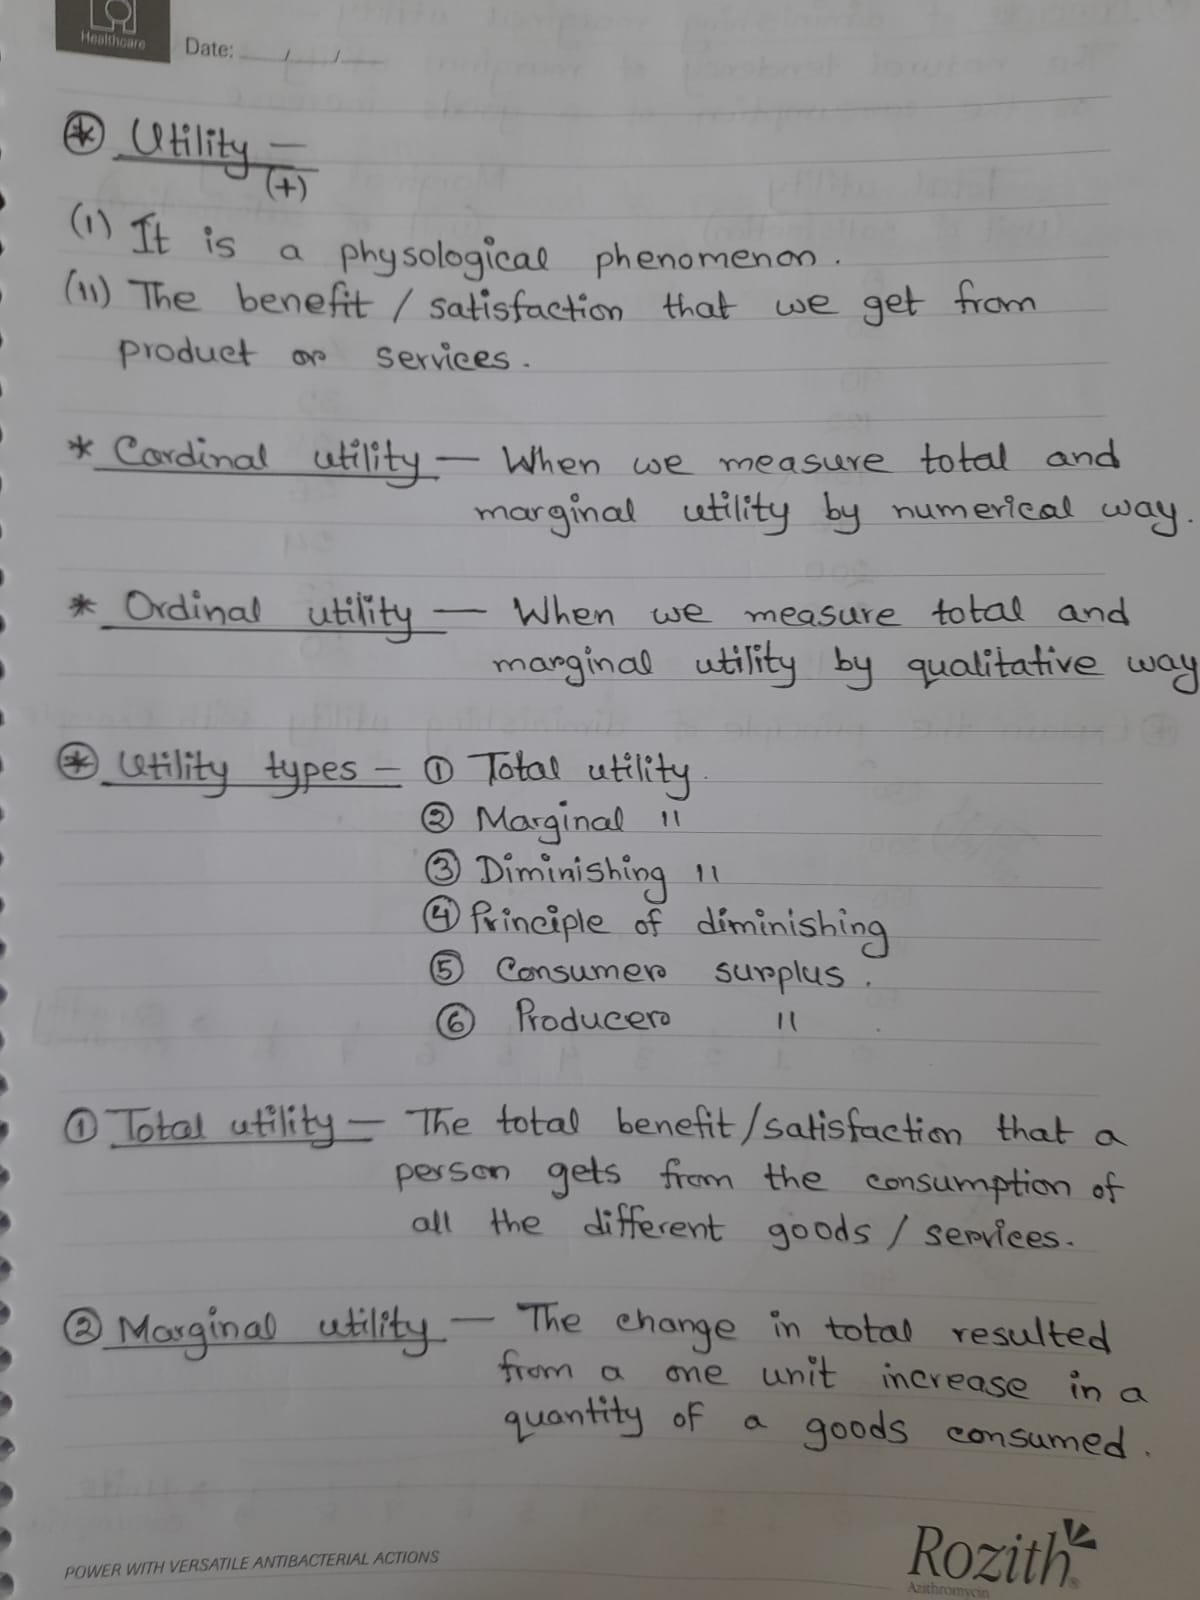 Healthcare
Date: __/__/__
* Utility —
(+)
(i) It is a physological phenomenon.
(ii) The benefit / satisfaction that we get from
product or services.
* Cardinal utility — When we measure total and
marginal utility by numerical way.
* Ordinal utility — When we measure total and
marginal utility by qualitative way
* Utility types — ① Total utility.
② Marginal "
③ Diminishing "
④ Principle of diminishing
⑤ Consumer surplus.
⑥ Producer "
① Total utility — The total benefit/satisfaction that a
person gets from the consumption of
all the different goods / services.
② Marginal utility — The change in total resulted
from a one unit increase in a
quantity of a goods consumed.
POWER WITH VERSATILE ANTIBACTERIAL ACTIONS
Rozith®
Azithromycin